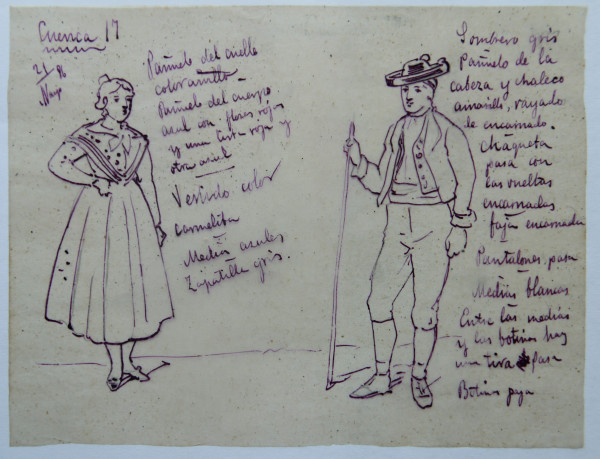 Cuenca 17
21
Mayo 96
Pañuelo del cuello
color amarillo
Pañuelo del cuerpo
azul con flores rojas
y una tira roja y
otra azul
Vestido color
carmelita
Medias azules
Zapatilla gris.
Sombrero gris
Pañuelo de la
cabeza y chaleco
amarillo, rayado
de encarnado.
Chaqueta
pasa con
las vueltas
encarnadas
faja encarnada
Pantalones, pasa
Medias blancas
Entre las medias
y los botines hay
una tira pasa
Botines